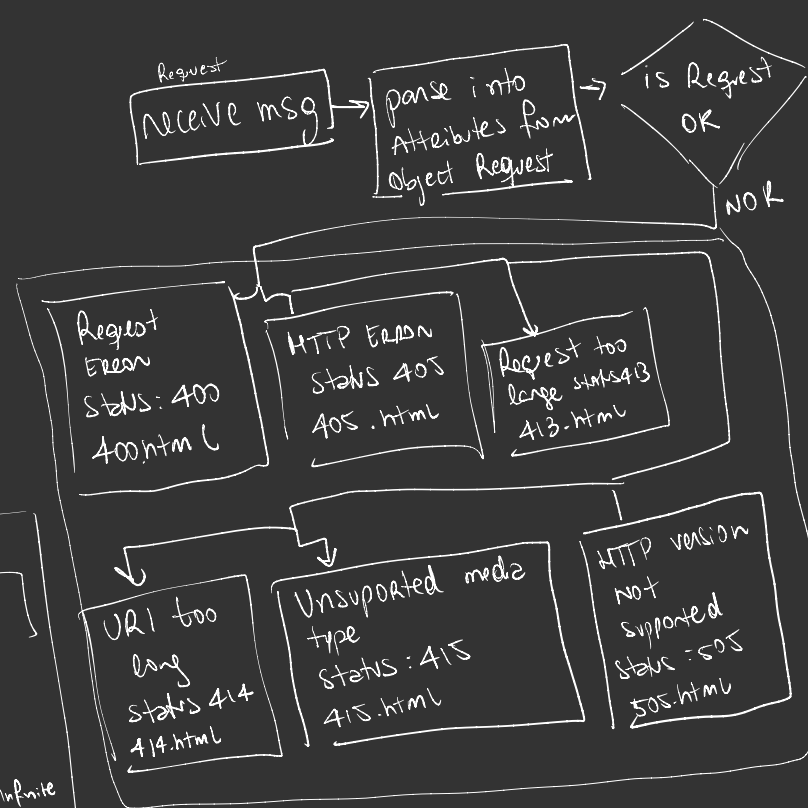 Request
receive msg
parse into
Attributes from
Object Request
is Request
OK
NOK
Request
Error
Status: 400
400.html
HTTP Error
Status 405
405.html
Request too
large status 413
413.html
URI too
long
status 414
414.html
Unsuported media
type
status: 415
415.html
HTTP version
Not
supported
status: 505
505.html
Infinite